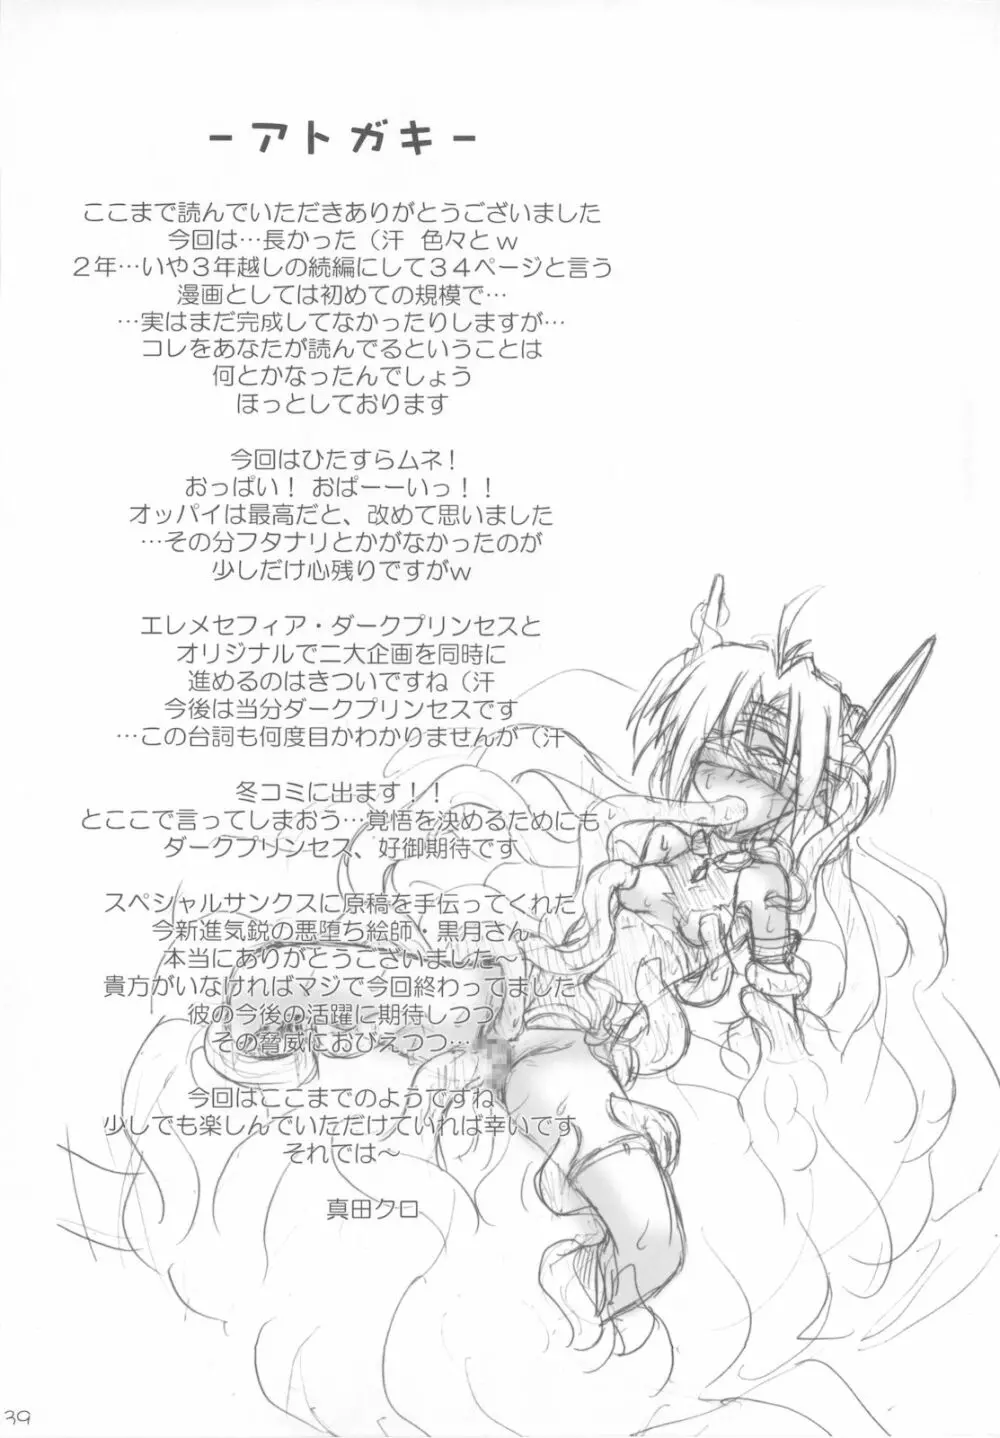 －アトガキ－
ここまで読んでいただきありがとうございました
今回は…長かった（汗 色々とｗ
２年…いや３年越しの続編にして３４ページと言う
漫画としては初めての規模で…
…実はまだ完成してなかったりしますが…
コレをあなたが読んでるということは
何とかなったんでしょう
ほっとしております
今回はひたすらムネ！
おっぱい！ おぱーーいっ！！
オッパイは最高だと、改めて思いました
…その分フタナリとかがなかったのが
少しだけ心残りですがｗ
エレメセフィア・ダークプリンセスと
オリジナルで二大企画を同時に
進めるのはきついですね（汗
今後は当分ダークプリンセスです
…この台詞も何度目かわかりませんが（汗
冬コミに出ます！！
とここで言ってしまおう…覚悟を決めるためにも
ダークプリンセス、好御期待です
スペシャルサンクスに原稿を手伝ってくれた
今新進気鋭の悪堕ち絵師・黒月さん
本当にありがとうございました～
貴方がいなければマジで今回終わってました
彼の今後の活躍に期待しつつ
その脅威におびえつつ…
今回はここまでのようですね
少しでも楽しんでいただけていれば幸いです
それでは～
真田クロ
39